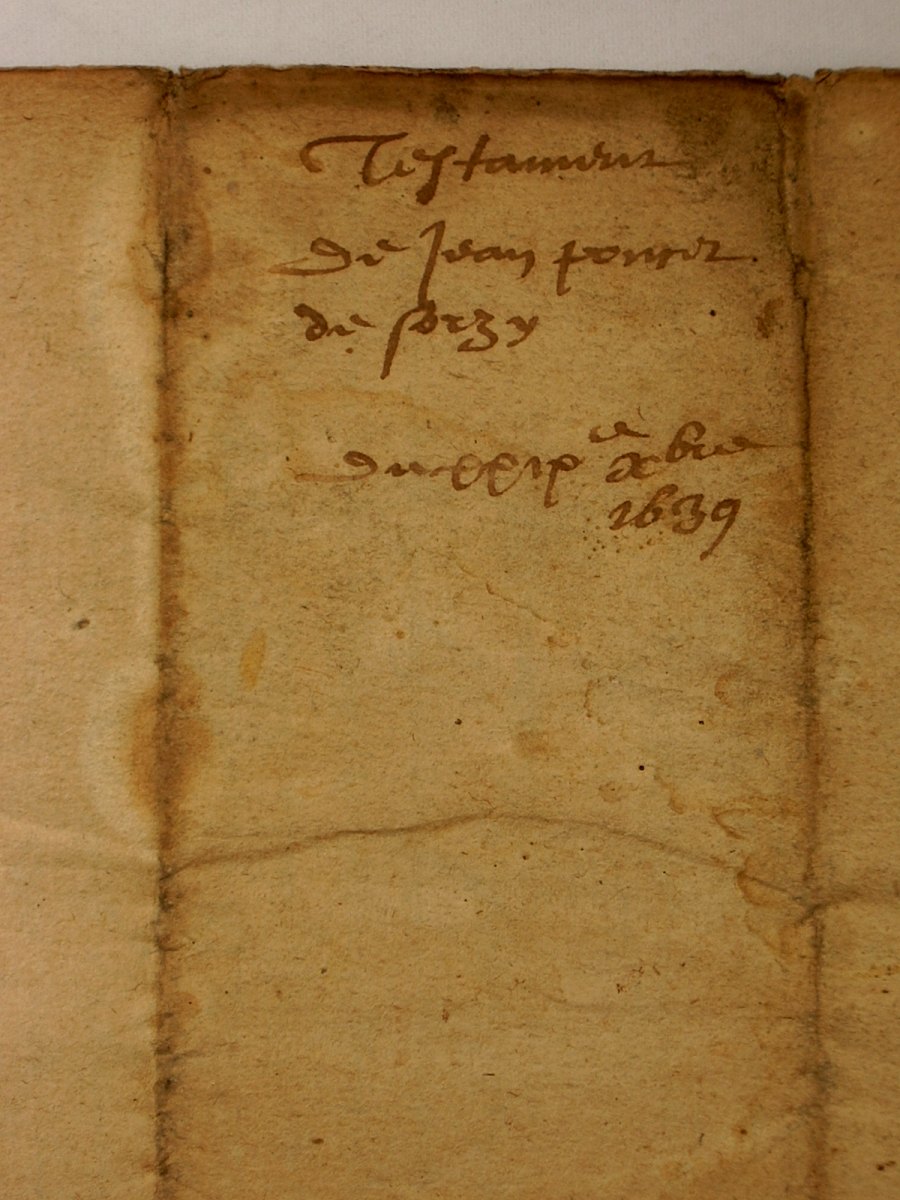 Testament
de Jean poncet
de sorzy
du xxix^e xbre
1639